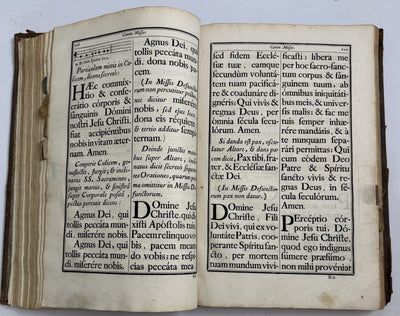 Canon Missæ.
Particulam mittit in Ca-
licem, dicens secretò:
HÆc commix-
tio & conse-
cratio córporis &
sánguinis Dómini
nostri Jesu Christi,
fiat accipiéntibus
nobis in vitam æter-
nam. Amen.
Cooperit Calicem, ge-
nuflectit, surgit; & in-
clinatus SS. Sacramento
junctis manus, & súmisso
super Corporale positis
pectus percutit dicens:
Agnus Dei, qui
tollis peccáta mun-
di. miserére nobis.
Agnus Dei, qui
tollis peccáta mun-
di. miserére nobis.
Agnus Dei, qui
tollis peccáta mun-
di, dona nobis pa-
cem.
(In Missis Defunctorum
non percutitur pectus,
nec dicitur miserére
nobis, sed ejus loco,
dona eis réquiem
& tertiò additur sempi-
ternam.
Deinde junctis mani-
bus super Altare, incli-
natus dicit secretò sequen-
tes Orationes, quarum pri-
ma omittitur in Missis De-
functorum.
DOmine Jesu
Christe, qui di-
xísti Apóstolis tuis,
Pacem relínquo vo-
bis, pacem meam
do vobis: ne respí-
cias peccáta mea,
Canon Missæ.
sed fidem Ecclé-
siæ tuæ, eámque
secundùm volun-
tátem tuam pacificá-
re & coadunáre di-
gnéris: Qui vivis &
regnas Deus, per
ómnia sécula secu-
lórum. Amen.
Si danda est pax, oscu-
latur Altare, & dans pa-
cem dicit, Pax tibi, fra-
ter, & Ecclésiæ san-
ctæ Dei.
(In Missis Defunctorum
pax non datur.)
DOmine Jesu
Christe, Fili
Dei vivi, qui ex vo-
luntáte Patris, coo-
peránte Spíritu san-
cto, per mortem
tuam mundum vivi-
ficásti: líbera me
per hoc sacro-san-
ctum corpus & sán-
guinem tuum, ab
ómnibus iniquitá-
tibus meis, & univér-
sis malis: & fac me
tuis semper inhæ-
rére mandátis, & à
te nunquam sepa-
rári permíttas: Qui
cum eódem Deo
Patre & Spíritu
sancto vivis & re-
gnas Deus, in sécu-
la seculórum.
Amen.
PErcéptio cór-
poris tui, Dó-
mine Jesu Christe,
quod ego indígnus
súmere præsúmo,
non mihi provéniat